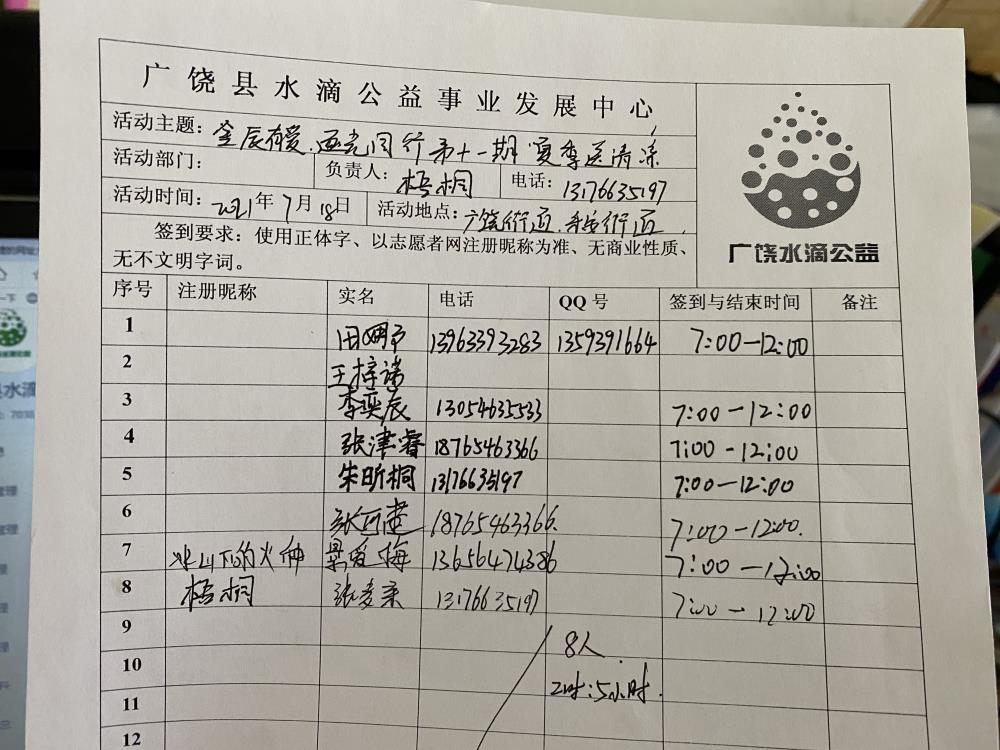 广饶县水滴公益事业发展中心
活动主题：金辰有爱.逐光同行第十一期"夏季送清凉"
活动部门： 负责人：梧桐 电话：13176635197
活动时间：2021年7月18日 活动地点：广饶街道.乐安街道.
签到要求：使用正体字、以志愿者网注册昵称为准、无商业性质、
无不文明字词。
广饶水滴公益
序号 注册昵称 实名 电话 QQ号 签到与结束时间 备注
1 13963393283 1359391664 7:00-12:00
2 王梓诺
3 李奕辰 13054635533 7:00-12:00
4 张津睿 18765463366 7:00-12:00
5 朱昕桐 13176635197 7:00-12:00
6 18765463366. 7:00-12:00.
7 冰山下的火种 梁爱梅 13656474386 7:00-12:00
8 梧桐 13176635197 7:00-12:00
9 8人.
10
11 :5小时.
12